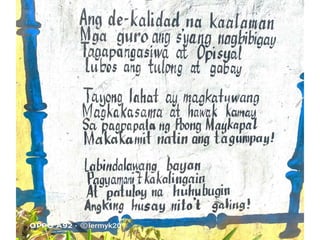 Ang de-kalidad na kaalaman
Mga guro ang syang nagbibigay
Tagapangasiwa at Opisyal
Lubos ang tulong at gabay
Tayong lahat ay magkatuwang
Magkakasama at hawak kamay
Sa pagpapala ng Poong Maykapal
Makakamit natin ang tagumpay!
Labindalawang bayan
Pagyamani't kakalingain
At patuloy na huhubugin
Angking husay nito't galing!
OPPO A92 · ©lermyk20